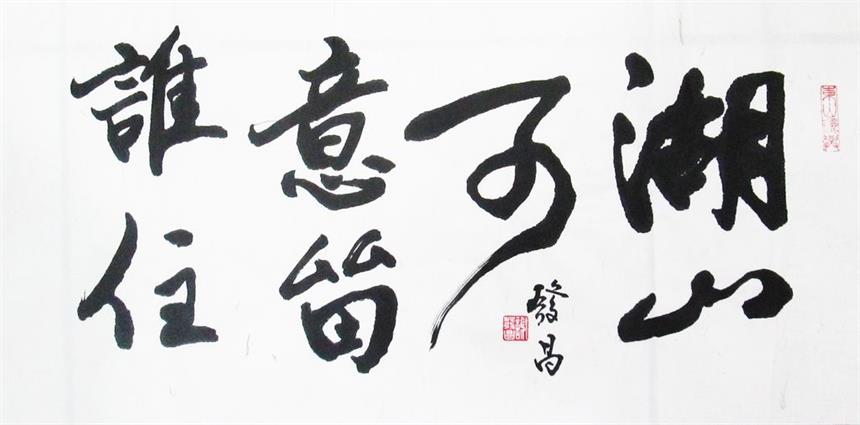 湖山
可
意留
誰住
發昌